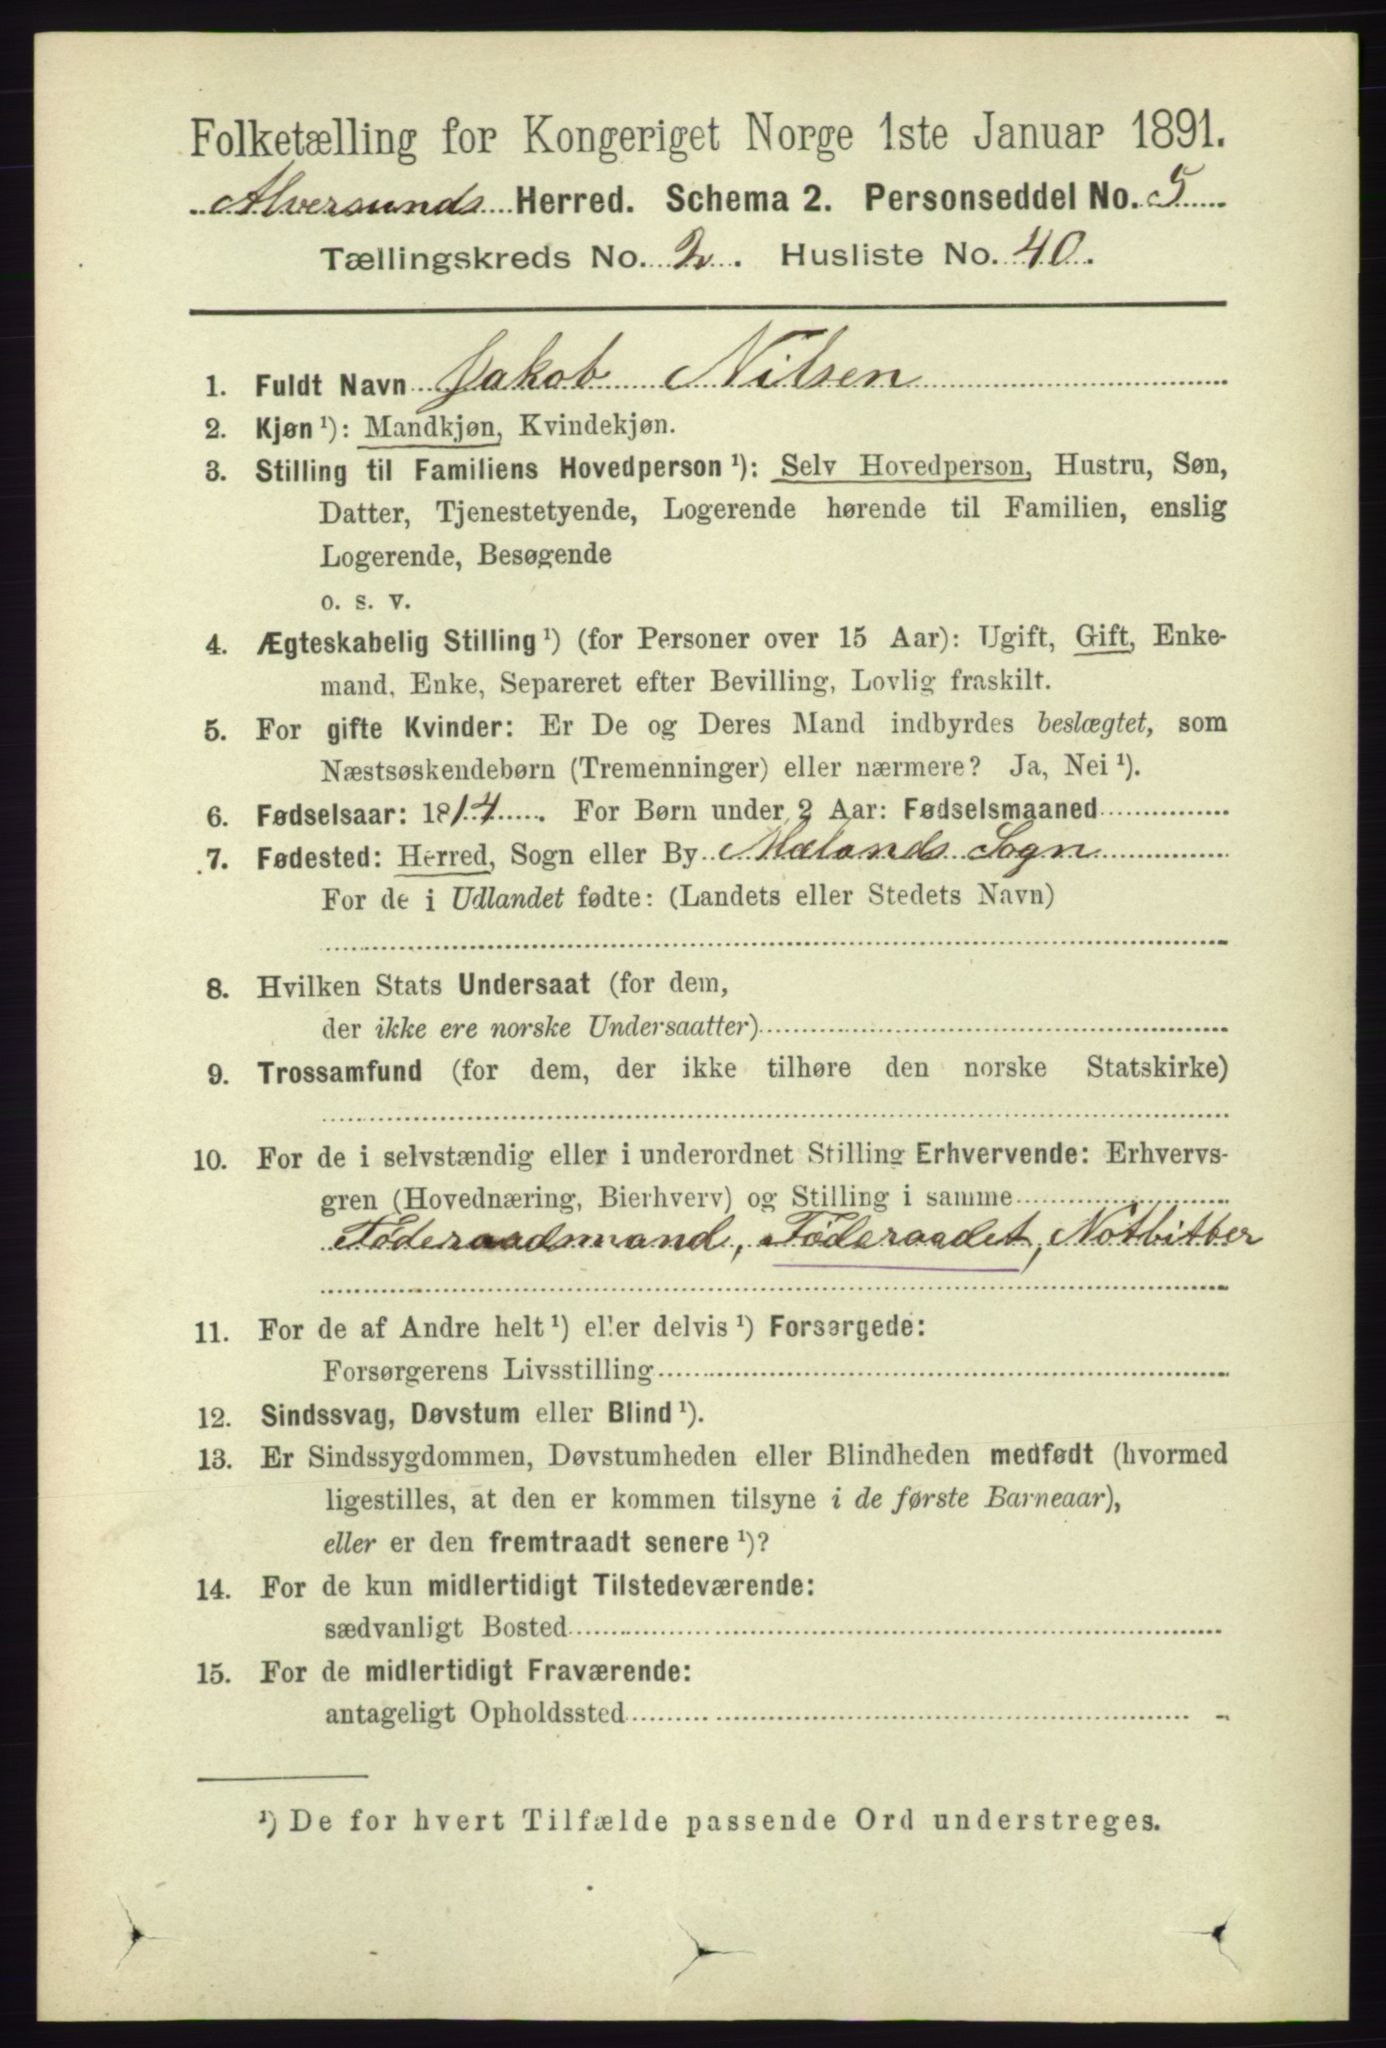 Folketælling for Kongeriget Norge 1ste Januar 1891.
Alversunds Herred. Schema 2. Personseddel No. 5
Tællingskreds No. 2. Husliste No. 40.
1. Fuldt Navn Jakob Nilsen
2. Kjøn ¹): Mandkjøn, Kvindekjøn.
3. Stilling til Familiens Hovedperson ¹): Selv Hovedperson, Hustru, Søn,
Datter, Tjenestetyende, Logerende hørende til Familien, enslig
Logerende, Besøgende
o. s. v.
4. Ægteskabelig Stilling ¹) (for Personer over 15 Aar): Ugift, Gift, Enke-
mand, Enke, Separeret efter Bevilling, Lovlig fraskilt.
5. For gifte Kvinder: Er De og Deres Mand indbyrdes beslægtet, som
Næstsøskendebørn (Tremenninger) eller nærmere? Ja, Nei ¹).
6. Fødselsaar: 1814. For Børn under 2 Aar: Fødselsmaaned
7. Fødested: Herred, Sogn eller By Mælands Sogn
For de i Udlandet fødte: (Landets eller Stedets Navn)
8. Hvilken Stats Undersaat (for dem,
der ikke ere norske Undersaatter)
9. Trossamfund (for dem, der ikke tilhøre den norske Statskirke)
10. For de i selvstændig eller i underordnet Stilling Erhvervende: Erhvervs-
gren (Hovednæring, Bierhverv) og Stilling i samme
Föderaadsmand, Föderaadet, Notbitber
11. For de af Andre helt ¹) eller delvis ¹) Forsørgede:
Forsørgerens Livsstilling
12. Sindssvag, Døvstum eller Blind ¹).
13. Er Sindssygdommen, Døvstumheden eller Blindheden medfødt (hvormed
ligestilles, at den er kommen tilsyne i de første Barneaar),
eller er den fremtraadt senere ¹)?
14. For de kun midlertidigt Tilstedeværende:
sædvanligt Bosted
15. For de midlertidigt Fraværende:
antageligt Opholdssted
¹) De for hvert Tilfælde passende Ord understreges.